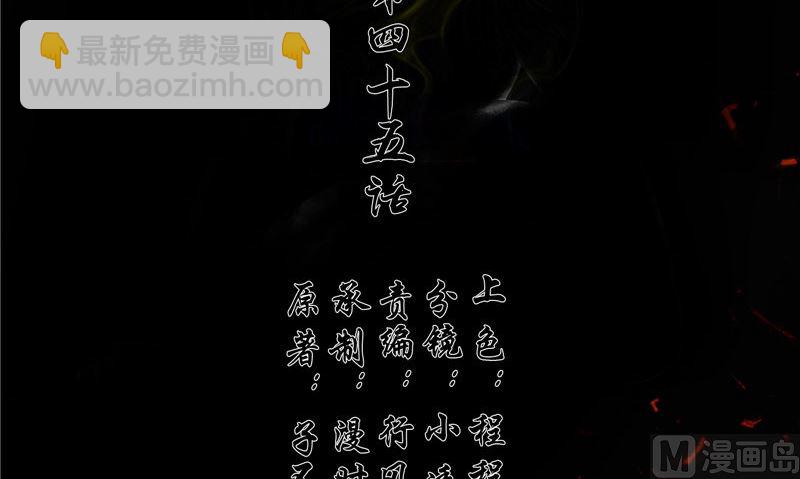 👇最新免费漫画👇
www.baozimh.com
第四十五话
上色：程程
分镜：小
责编：行风
承制：漫时
原著：子不
M漫画岛